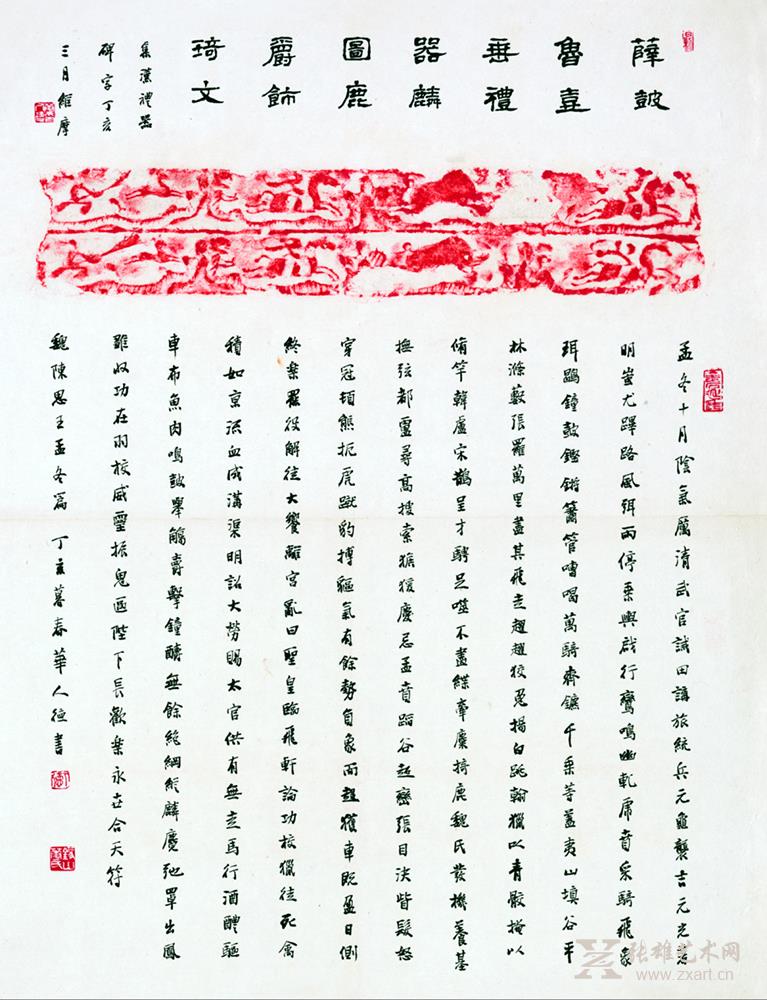 薛鼓
魯壹
垂禮
器麟
圖鹿
爵飾
琦文
集漢禮器
碑字丁亥
三月維摩
孟冬十月陰氣厲清武官誡田講旅統兵元龜襲吉元光著
明蚩尤蹕路風弭雨停乘輿啟行鸞鳴幽軋虎賁采騎飛象
珥鶡鐘鼓鏗鏘簫管嘈喝萬騎齊鑣千乘等蓋夷山填谷平
林滌藪張羅萬里盡其飛走趯趯狡兔揚白跳翰獵以青骹掩以
脩竿韓盧宋鵲呈才騁足噬不盡緤牽麋掎鹿魏氏發機養基
撫弦都盧尋高搜索猴猨慶忌孟賁蹈谷超巒張目決眥髮怒
穿冠頓熊扼虎蹴豹搏貙氣有餘勢負象而趨獲車既盈日側
終樂罷役解徒大饗離宮亂曰聖皇臨飛軒論功校獵徒死禽
積如京流血成溝渠明詔大勞賜太官供有無走馬行酒醴驅
車布魚肉鳴鼓舉觴爵擊鐘醮無餘絕網縱麟麑弛罩出鳳
雛收功在羽校威靈振鬼區陛下長歡樂永世合天符
魏陳思王孟冬篇 丁亥暮春華人德書
张雄艺术网
www.zxart.cn